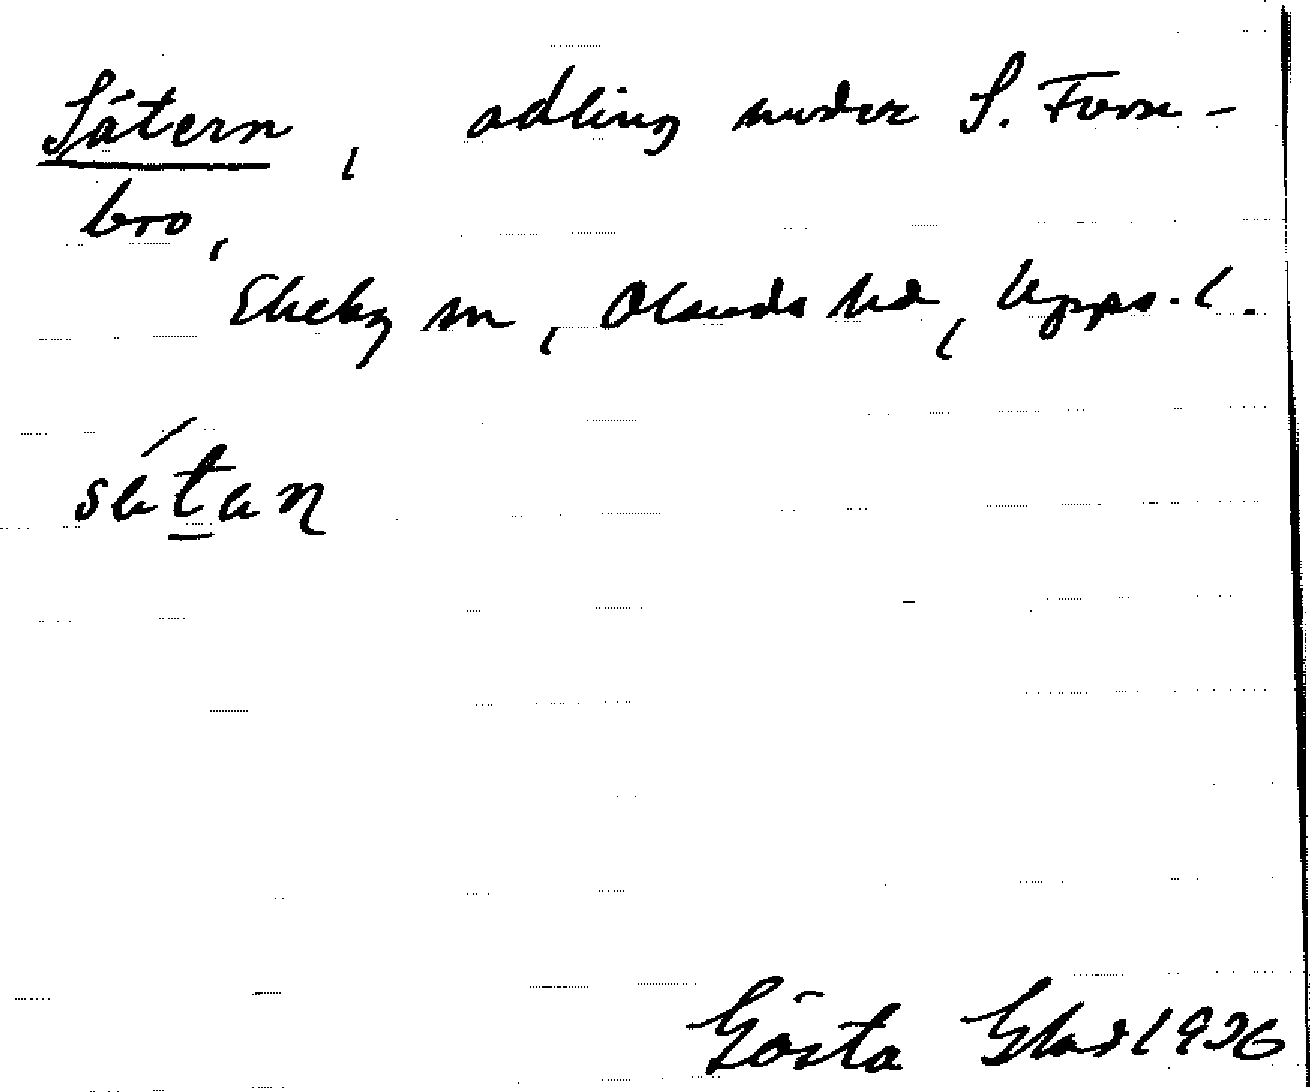 Sätern, odling under S. Forn-
bro,
Ekeby sn, Olands hd, Upps. l.
sätan
Gösta Glad 1936